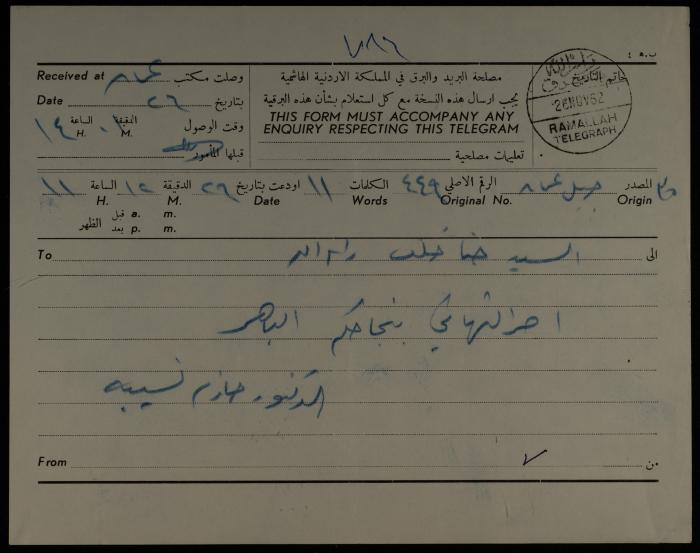 ٧٨٦
ب. ه ٤
Received at عمان وصلت مكتب
Date ٢٦ بتاريخ
الساعة H. ١٤ الدقيقة M. وقت الوصول
قبلها المأمور
مصلحة البريد والبرق في المملكة الاردنية الهاشمية
يجب ارسال هذه النسخة مع كل استعلام بشأن هذه البرقية
THIS FORM MUST ACCOMPANY ANY
ENQUIRY RESPECTING THIS TELEGRAM
تعليمات مصلحية
خاتم التاريخ
26 NOV 52
RAMALLAH
TELEGRAPH
المصدر Origin جبل عمان الرقم الاصلي Original No. ٤٤٩ الكلمات Words ١١ اودعت بتاريخ Date ٢٦ الدقيقة M. ١٢ الساعة H. ١١
قبل a. m.
بعد p. m. الظهر
To السيد حنا خلف رام الله الى
احر التهاني بنجاحكم الباهر
الدكتور حازم نسيبه
From من